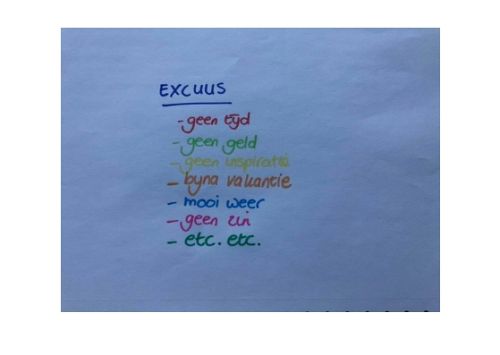 EXCUUS
- geen tijd
- geen geld
- geen inspiratie
- byna vakantie
- mooi weer
- geen zin
- etc. etc.